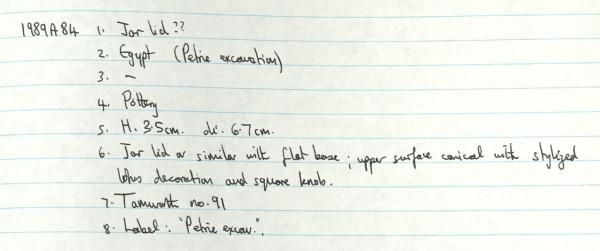 1989A84 1. Jar lid??
2. Egypt (Petrie excavation)
3. –
4. Pottery
5. H. 3.5cm. di. 6.7cm.
6. Jar lid or similar with flat base; upper surface conical with stylized
lotus decoration and square knob.
7. Tamworth no. 91
8. Label: 'Petrie excav.'.